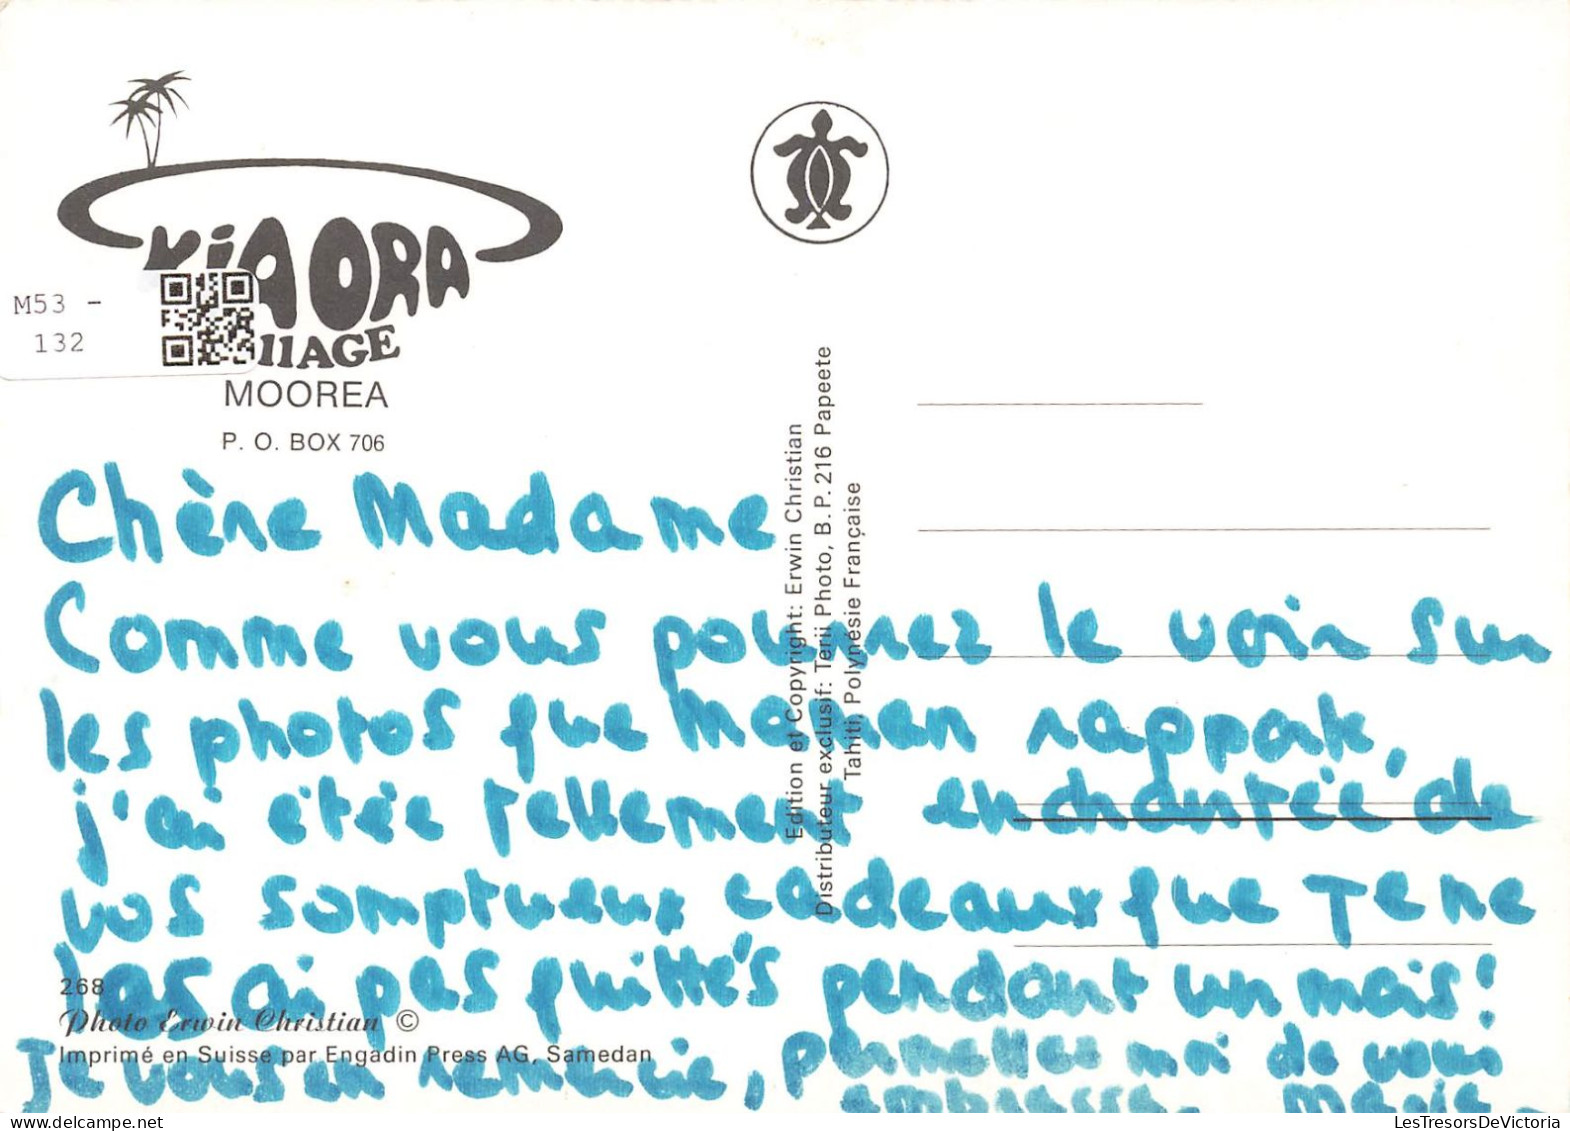 KIA ORA
M53 -
132
llAGE
MOOREA
P. O. BOX 706
Edition et Copyright: Erwin Christian
Distributeur exclusif: Terii Photo, B. P. 216 Papeete
Tahiti, Polynésie Française
Chère Madame
Comme vous pourrez le voir sur
les photos que Maman rapporte,
j'ai étée tellement enchantée de
vos somptueux cadeaux que Je ne
les ai pas quittés pendant un mois!
268
Photo Erwin Christian ©
Imprimé en Suisse par Engadin Press AG, Samedan
Je vous en remercie, permettez moi de vous
embrasser. Marie-
LesTresorsDeVictoria